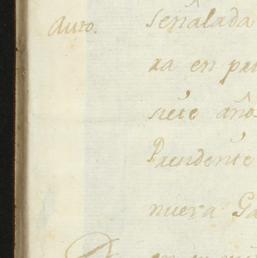 Auto.
señalada
ra en pu
siete año
Presidente
nueva Ga